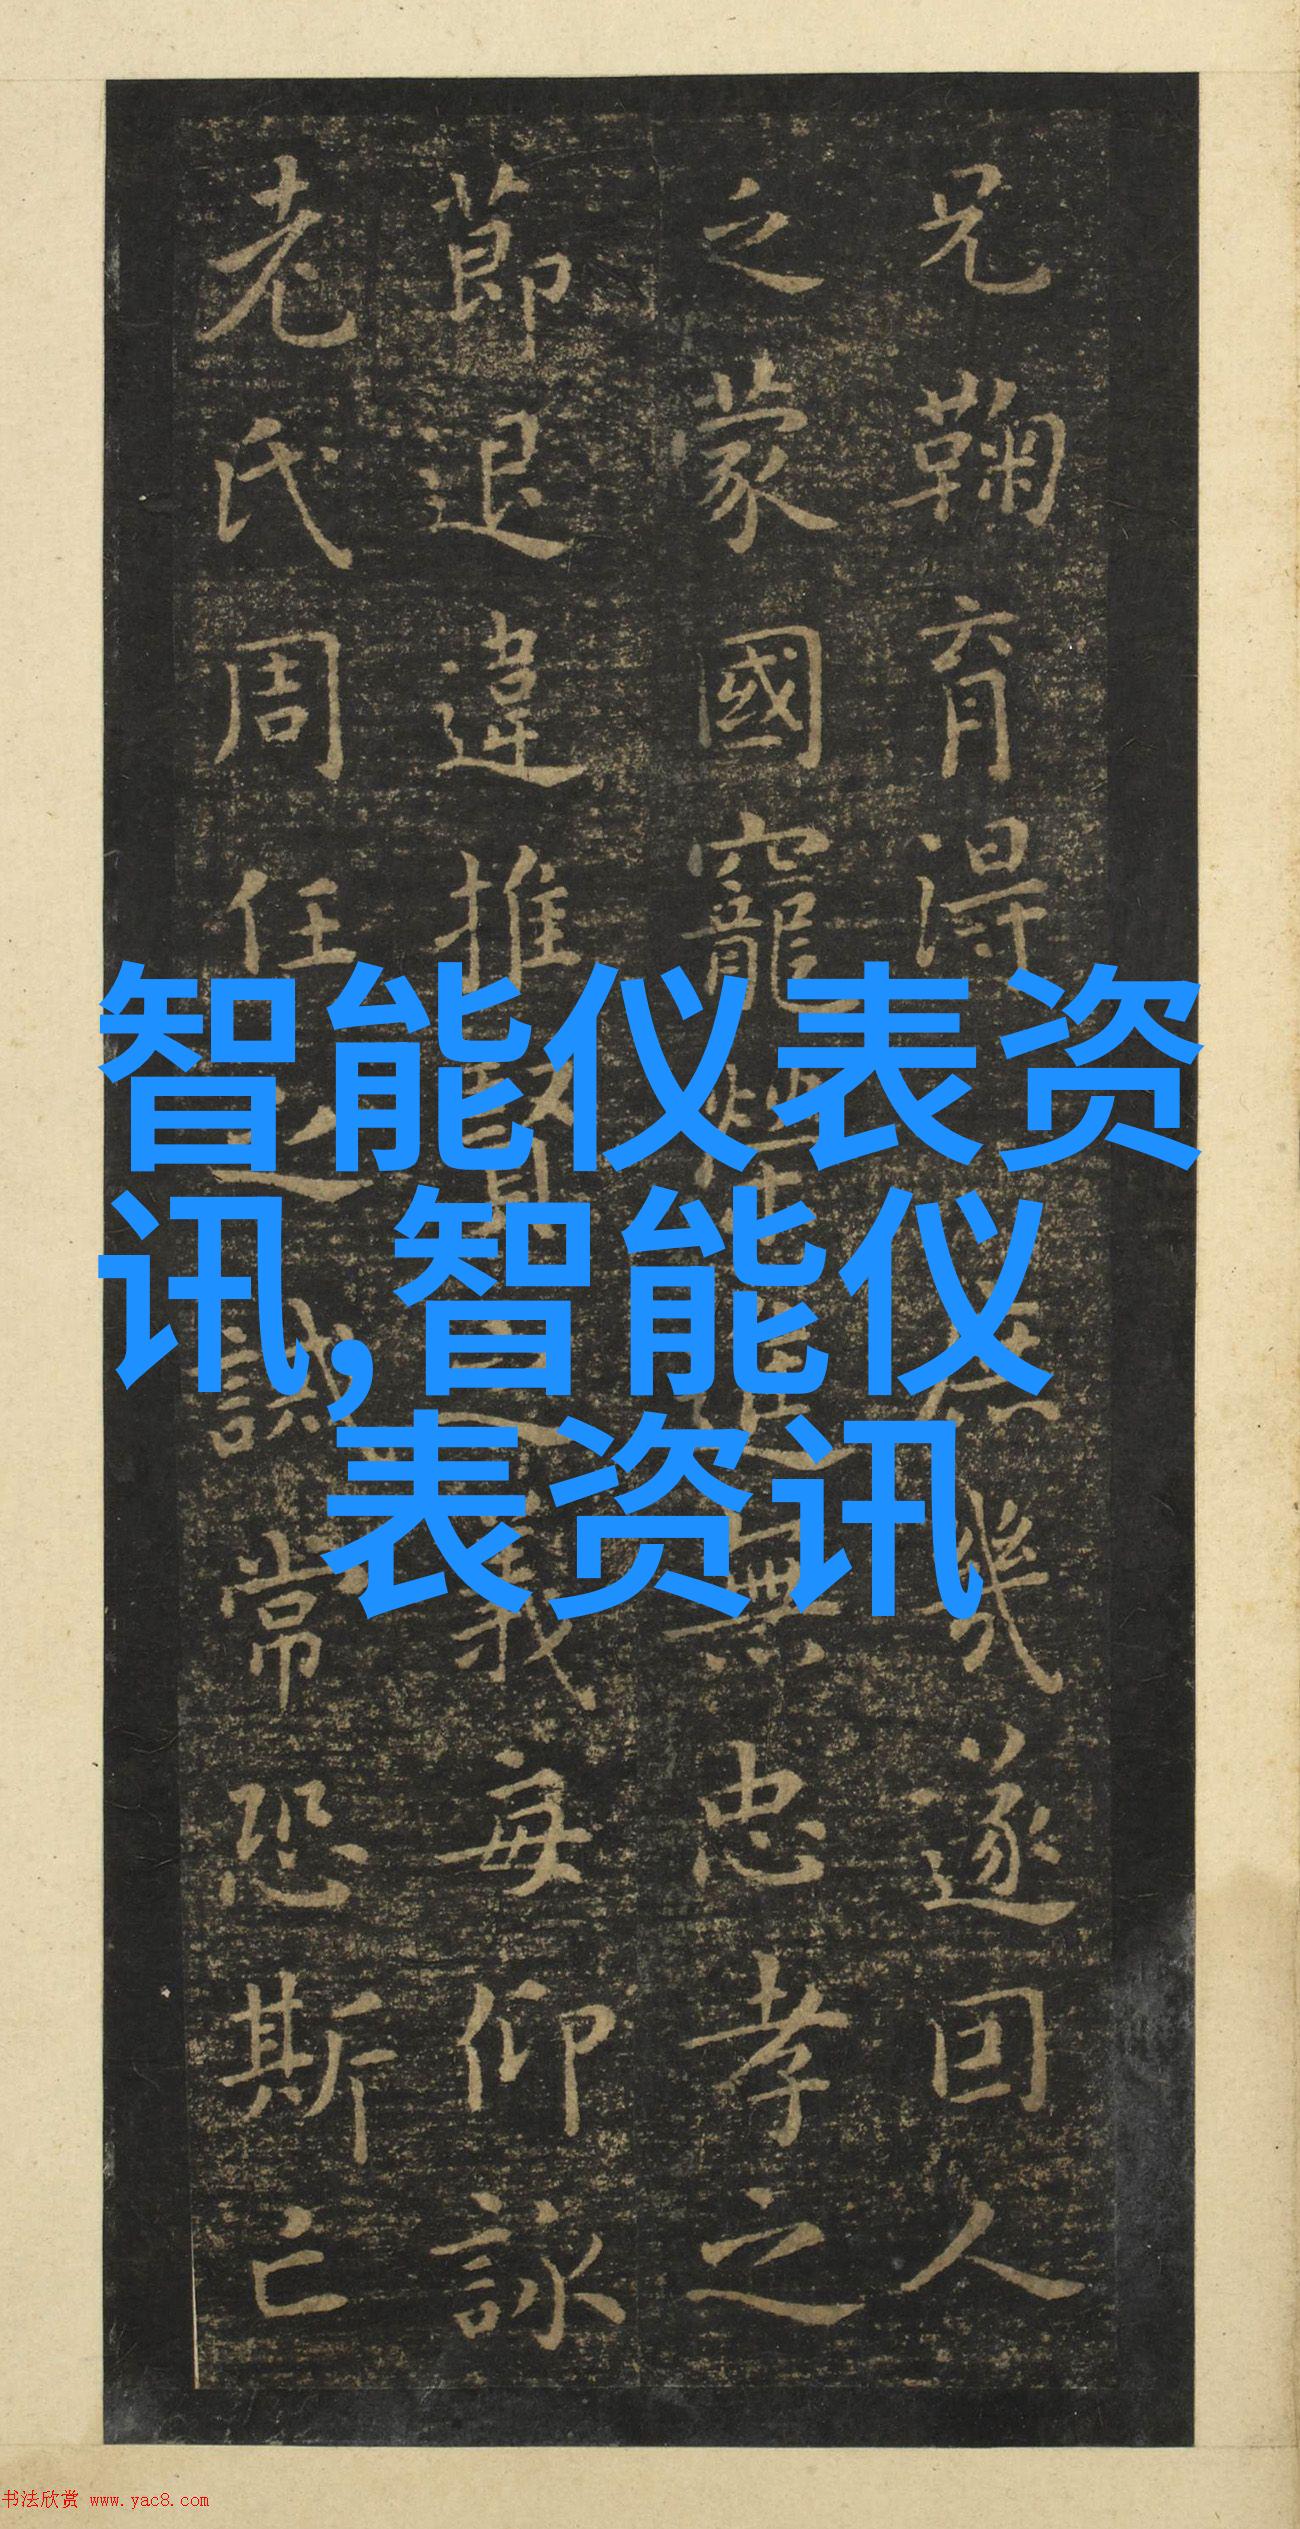 兄鞠育得庶幾遂因人
之蒙國寵榮進無忠孝之
莭退違推賢之義每仰詠
老氏周任之誡常恐斯亡
智能仪表资
讯,智能仪
表资讯
书法欣赏 www.yac8.com